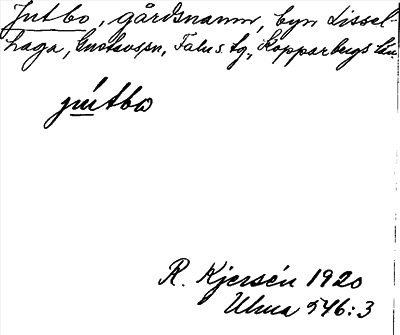 Jutbo, gårdsnamn, byn Lissel-
haga, Gustavs sn, Falu s tg, Kopparbergs län
jùtbω
R. Kjersén 1920
Ulma 546:3